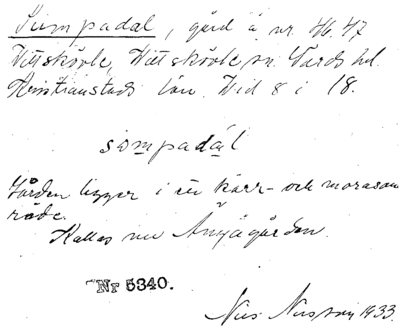 Sumpadal, gård å nr 46, 47
Vittskövle, Vittskövle sn. Gärds hd.
Kristianstads län. Vid 8 i 18.
sompadál
Gården ligger i ett kärr- och morasom
råde.
Kallas nu Ängagården.
Nr 5340.
Nils Nilsson 1933.